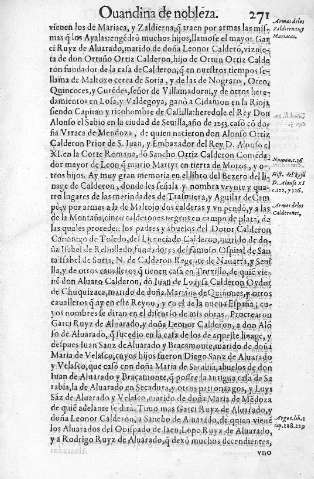 Ouandina de nobleza. 271
vienen los de Mariaca, y Zaldierna, q̃ traen por armas las mis-
mas q̃ los Ayalas: engẽdró muchos hijos, llamose el mayor Gar-
ci Ruyz de Aluarado, marido de doña Leonor Calderõ, viznie-
ta de don Ortuño Ortiz Calderon, hijo de Ortun Ortiz Calde
ron fundador de la casa de Calderon, q̃ en nuestros tiempos se
llama de Maltoso cerca de Soria, y de las de Nograro,
Quincoces, y señor de Villamaderni, y de otros here-
damientos en Losa, y Valdegoya, ganó a Cidamon en la Rioja
siendo Capitan y ricohombre de Castilla: heredole el Rey Don
Alonso el Sabio en la ciudad de Seuilla, año de casó cõ do-
ña Vrraca de Mendoza, de quien nacieron don Alonso Ortiz
Calderon Prior de S. Juan, y Embaxador del Rey D. Alonso el
XI. en la Corte Romana, fõ Sancho Ortiz Calderon Comenda
dor mayor de Leon, q̃ murio Martyr en tierra de Moros, y o-
tros hijos. Ay muy gran memoria en el libro del Bezero del li-
nage de Calderon, donde les señala y nombra veynte y qua-
tro lugares de las merindades de Trasmiera, y Aguilar de Cam
pó, y por armas a la de dos calderas y vn pendõ, y a las
de la Montaña, cinco calderones negros en campo de plata, de
las quales procede los padres y abuelos del Dotor Calderon
Canonigo de Toledo, del Licenciado Calderon, marido de do-
ña Isabel de Rebolledo, fundadores del famoso Ospital de San-
ta Isabel de Soria, N. de Calderon Regente de Nauarra, y Seui-
lla, y de otros caualleros q̃ tienen casa en Truxillo, de quiẽ vie-
ne don Aluaro Calderon, dõ Juan de Loaysa Calderon Oydor
de Chuquizaca, marido de doña Mariana de Quiñones, y otros
caualleros q̃ ay en este Reyno, y en el de la nueua España, cu-
yos nombres se diran en el discurso de mis obras. Procrearon
Garci Ruyz de Aluarado, y doña Leonor Calderon, a don Alõ
so de Aluarado, q̃ sucedio en la casa de los de aqueste linage, y
despues Iuan Sanz de Aluarado y Bracamonte, marido de doña
Maria de Velasco, cuyos hijos fueron Diego Sanz de Aluarado
y Velasco, que casó con doña Maria de Sarabia, abuelos de don
Iuan de Aluarado y Bracamonte, q̃ posee la antigua casa de Sa-
rabia, la de Aluarado en Secadura, y otros patronazgos, y Luys
Sãz de Aluarado y Velasco, marido de doña Maria de Mẽdoza
de quiẽ adelante se dirá. Tuuo mas Garci Ruyz de Aluarado, y
doña Leonor Calderon, a Sancho de Aluarado, de quien viene
los Aluarados del Obispado de Iaen, Lope Ruyz de Aluarado,
y a Rodrigo Ruyz de Aluarado, q̃ dexó muchos decendientes,
vno
Armas de los
Zaldiernas y
Mariacas.
Hist. del Rey
D. Alonso XI
Armas de los
Calderones.
Argot. lib. 1